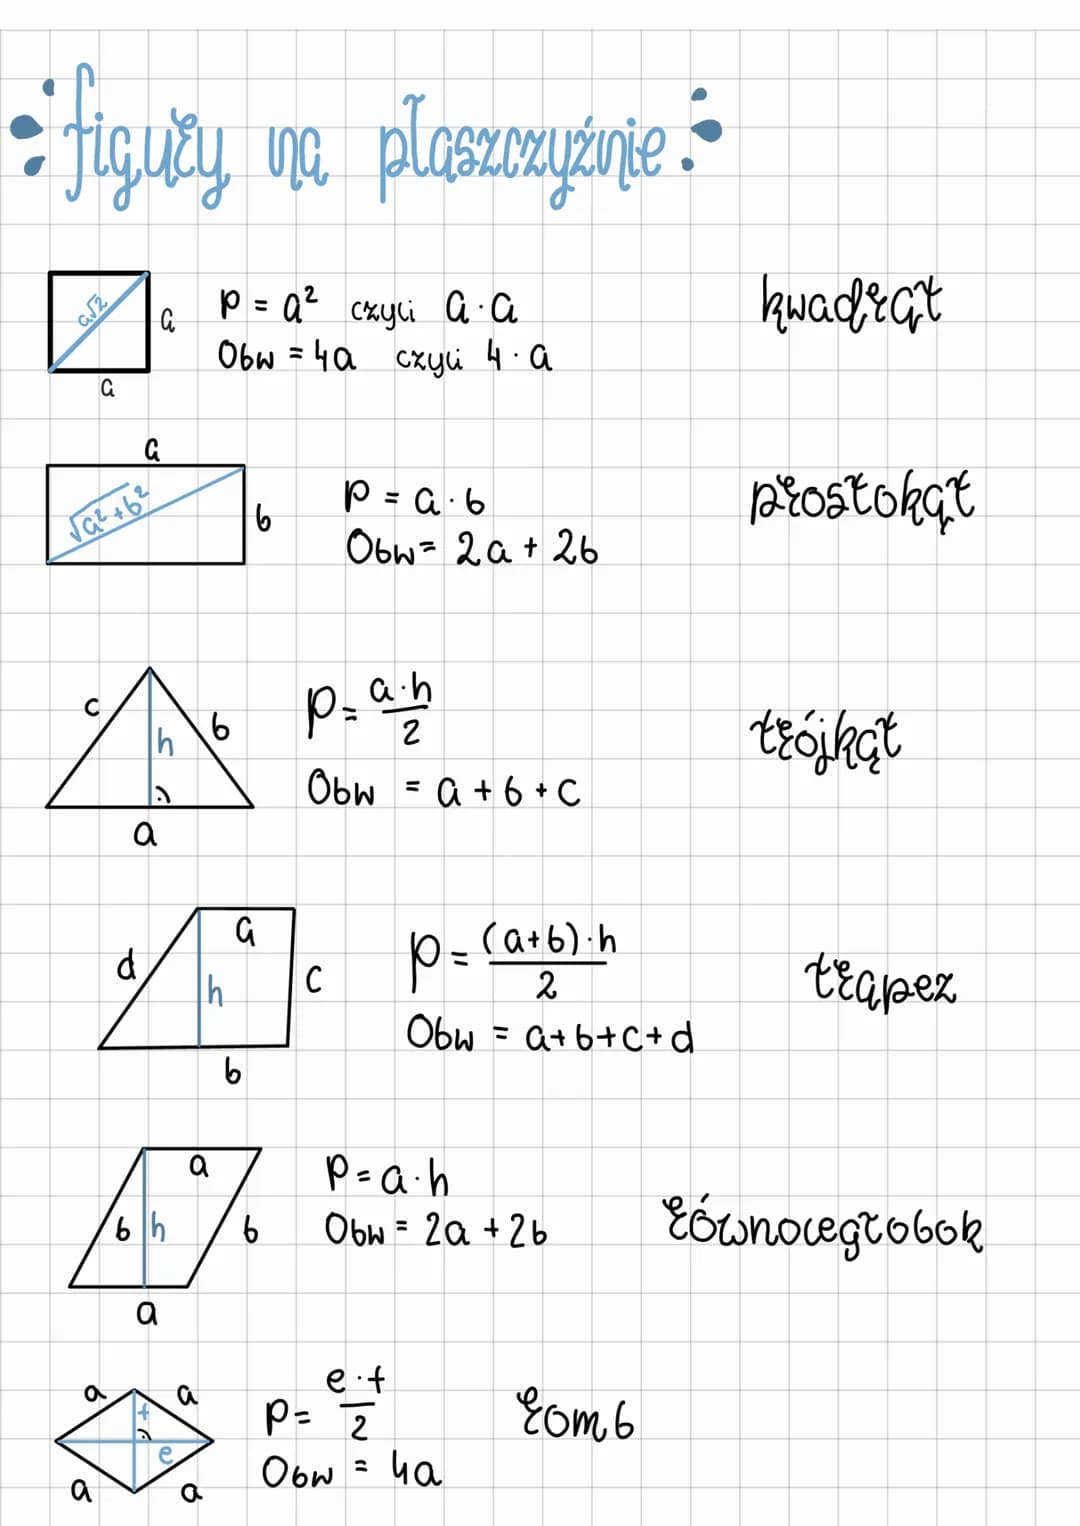 figury na płaszczyźnie
a√2
a
a
P = a² czyli a · a
Obw = 4a czyli 4 · a
kwadrat
a
√a²+b²
b
P = a · b
Obw = 2a + 2b
prostokąt
c
h
b
a
P = a·h
2
Obw = a + b + c
trójkąt
a
d
h
c
b
P = (a+b)·h
2
Obw = a+b+c+d
trapez
a
b
h
b
a
P = a·h
Obw = 2a + 2b
równoległobok
a
a
f
e
a
a
P = e·f
2
Obw = 4a
romb